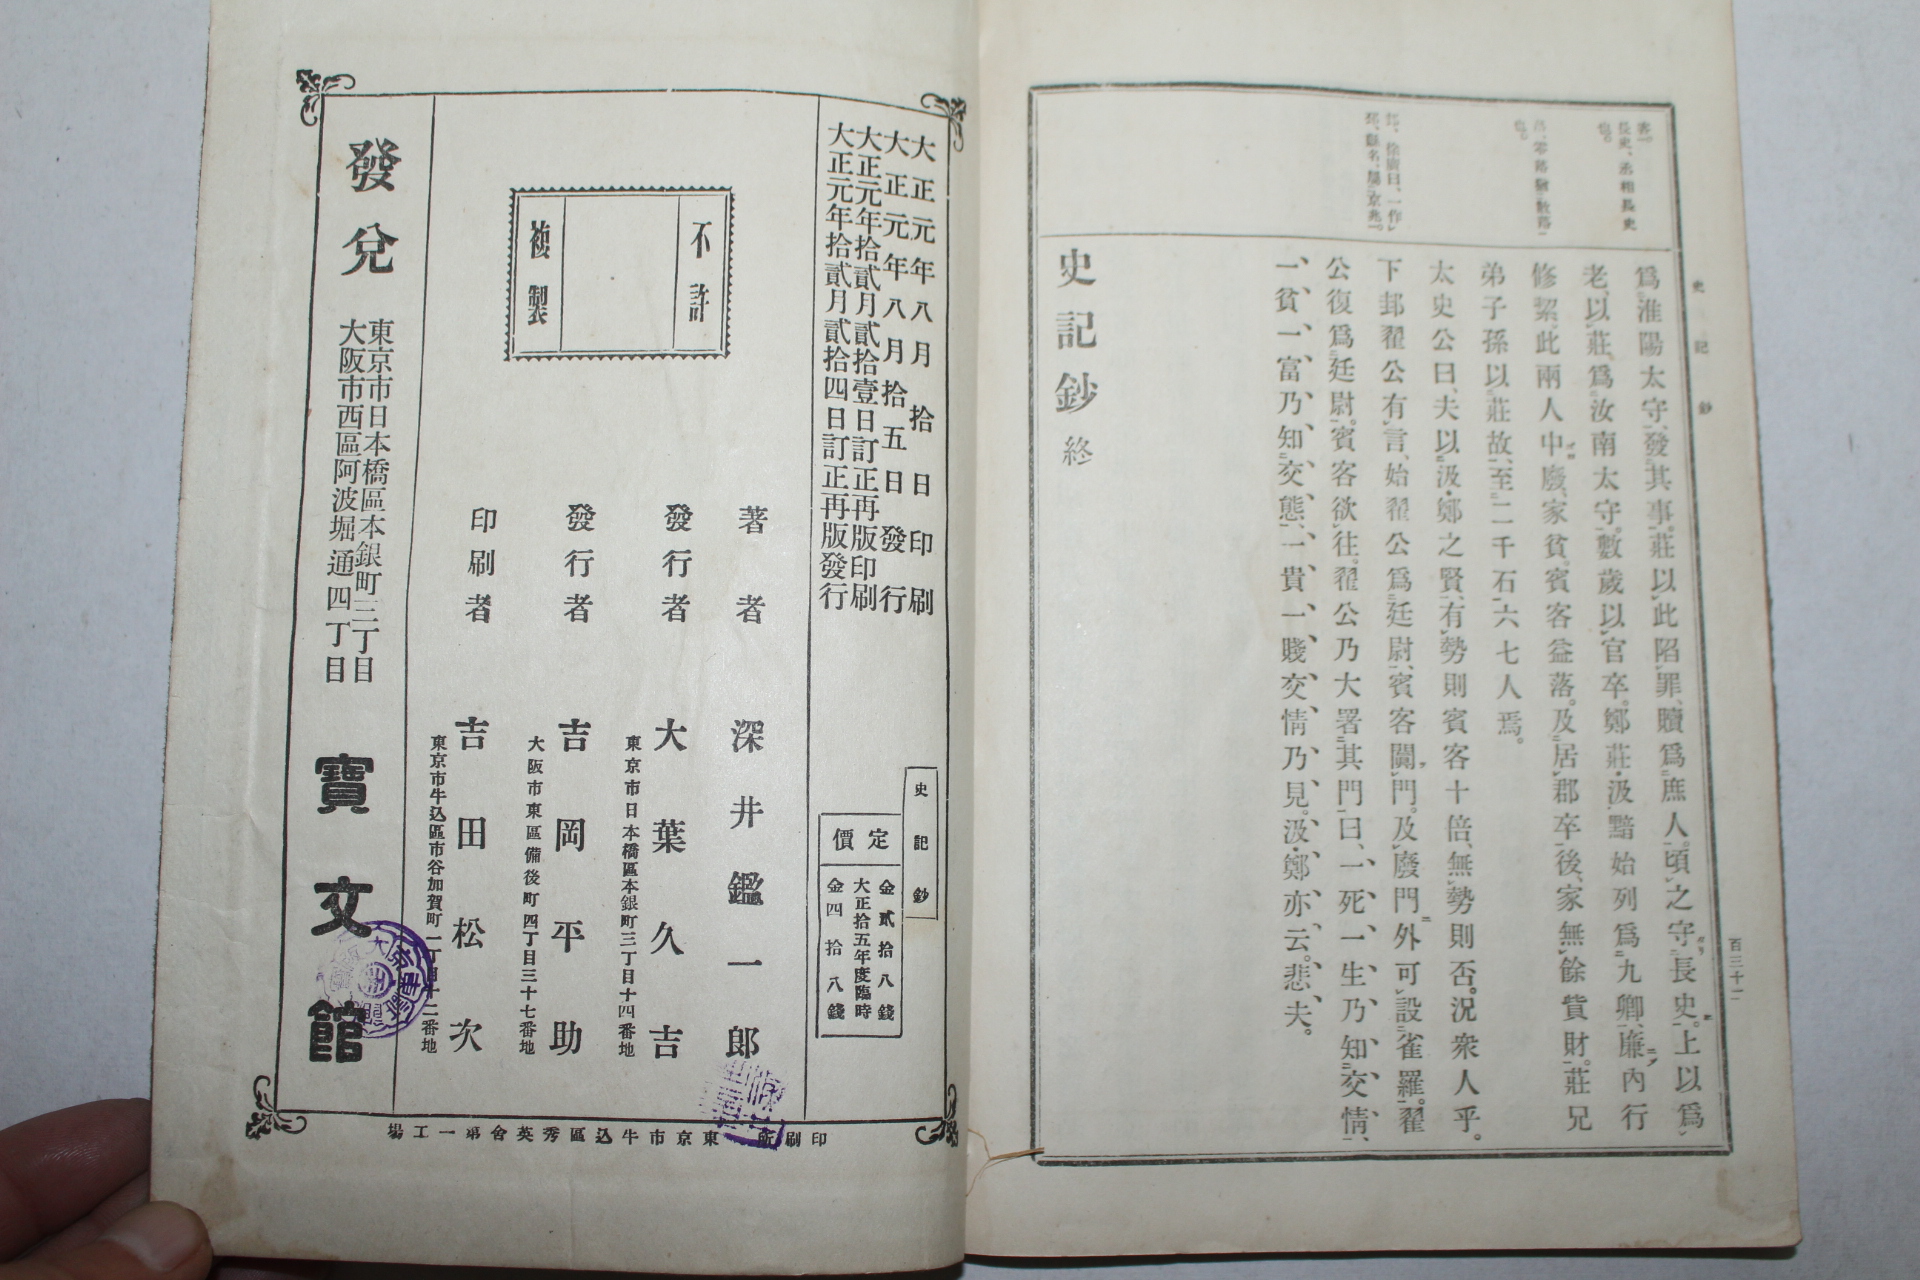 史記鈔
百三十二
長史、丞相長史也。
爲淮陽太守、發其事。莊以此陷罪、贖爲庶人。頃之守長史。上以爲
老、以莊爲汝南太守。數歲以官卒。鄭莊・汲黯始列爲九卿、廉內行
修絜。此兩人中廢、家貧。賓客益落。及居郡卒後、家無餘貲財。莊兄
弟子孫以莊故、至二千石六七人焉。
太史公曰、夫以汲・鄭之賢、有勢則賓客十倍、無勢則否。況衆人乎。
下邽翟公有言、始翟公爲廷尉、賓客闐門。及廢門外可設雀羅。翟
公復爲廷尉。賓客欲往。翟公乃大署其門曰、一死一生乃知交情、
一貧一富乃知交態、一貴一賤交情乃見。汲・鄭亦云。悲夫。
史記鈔終
大正元年八月拾日印刷
大正元年八月拾五日發行
大正元年拾貳月貳拾壹日訂正再版印刷
大正元年拾貳月貳拾四日訂正再版發行
史記鈔
定價
金貳拾八錢
大正拾五年度臨時
金四拾八錢
不許
複製
著者 深井鑑一郎
發行者 大葉久吉
東京市日本橋區本銀町三丁目十四番地
發行者 吉岡平助
大阪市東區備後町四丁目三十七番地
印刷者 吉田松次
東京市牛込區市谷加賀町一丁目十二番地
發兌
東京市日本橋區本銀町三丁目
大阪市西區阿波堀通四丁目
寶文館
印刷所 東京市牛込區秀英舍第一工場